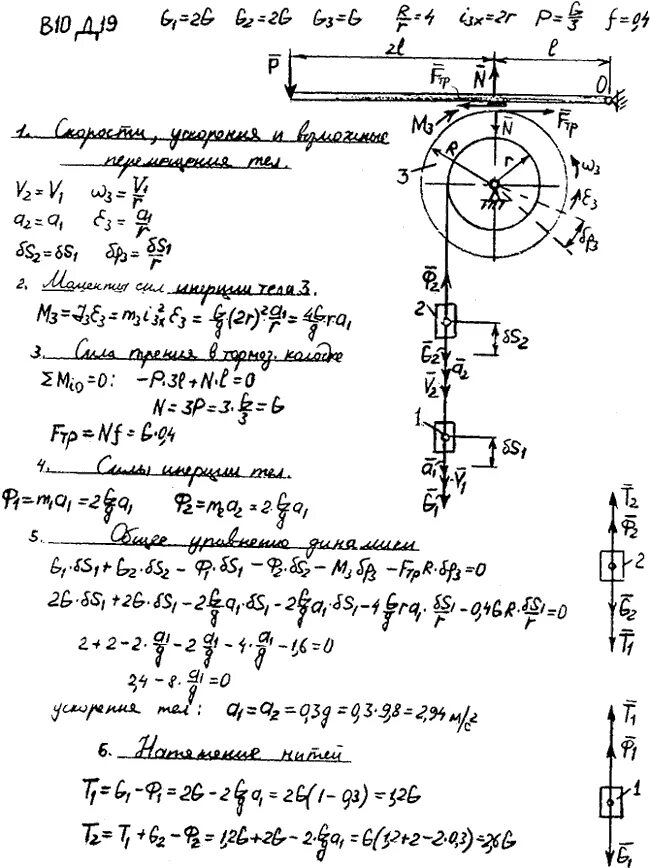 В10 Д19 G₁=2G G₂=2G G₃=G R/r=4 i₃ₓ=2r P=G/3 f=0,4
2l l
P̄ F̄тр N̄ O
M₃ N̄ F̄тр
R r
3 ω₃
ε₃
δφ₃
1. Скорости, ускорения и возможные
перемещения тел.
V₂=V₁ ω₃=V₁/r
a₂=a₁ ε₃=a₁/r
δS₂=δS₁ δφ₃=δS₁/r
Φ̄₂
2 δS₂
Ḡ₂ ā₂
V̄₂
2. Моменты сил инерции тела 3.
M₃=J₃ε₃=m₃i₃ₓ²ε₃=G/g(2r)²a₁/r=4G/g ra₁
3. Сила трения в тормоз. колодке
ΣMᵢ₀=0: -P·3l+N·l=0
N=3P=3·G/3=G
Fтр=Nf=G·0,4
1 δS₁
ā₁ V̄₁
Ḡ₁
4. Силы инерции тел.
Φ₁=m₁a₁=2G/g a₁ Φ₂=m₂a₂=2G/g a₁
5. Общее уравнение динамики
G₁·δS₁+G₂·δS₂-Φ₁·δS₁-Φ₂·δS₂-M₃δφ₃-FтрR·δφ₃=0
2G·δS₁+2G·δS₁-2G/g a₁·δS₁-2G/g a₁·δS₁-4G/g ra₁·δS₁/r-0,4GR·δS₁/r=0
2+2-2·a₁/g-2a₁/g-4·a₁/g-1,6=0
2,4-8·a₁/g=0
ускорения тел: a₁=a₂=0,3g=0,3·9,8=2,94 м/с²
T̄₂
Φ̄₂
2
Ḡ₂
T̄₁
6. Натяжение нитей
T₁=G₁-Φ₁=2G-2G/g a₁=2G(1-0,3)=1,2G
T₂=T₁+G₂-Φ₂=1,2G+2G-2·G/g a₁=G(1,2+2-2·0,3)=2,6G
T̄₁
Φ̄₁
1
Ḡ₁